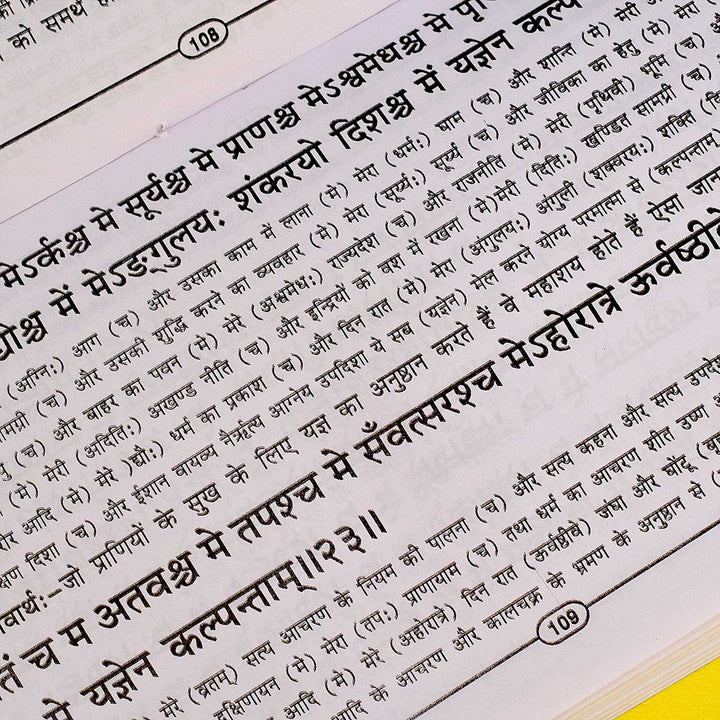 को समर्थ
108
मेऽर्कश्च मे सूर्यश्च मे प्राणश्च मेऽश्वमेधश्च मे
द्यौश्च में मेऽङ्गुलयः शंकरयो दिशश्च में यज्ञेन कल्प
(अग्निः) आग (च) और उसका काम में लाना (मे) मेरा (धर्मः) घाम (च) और शान्ति (मे) मेरी
(च) और उसकी शुद्धि करने का व्यवहार (मे) मेरा (सूर्य्यः) सूर्य्य (च) और जीविका का हेतु (मे) मेरा
(च) और बाहर का पवन (मे) मेरे (अश्वमेधः) राज्यदेश (च) और राजनीति (मे) मेरी (पृथिवी) भूमि (च)
(मे) मेरी (अदितिः) अखण्ड नीति (च) और इन्द्रियों को वश में रखना (मे)मेरी (दितिः) खण्डित सामग्री (च)
आदि (मे) मेरे )द्यौः) धर्म का प्रकाश (च) और दिन रात (मे) मेरा (अंगुलयः) अंगुली (शक्वरयः) शक्ति
दिशा (च) और ईशान वायव्य नैर्ऋत्य आग्नेय उपदिशा ये सब (यज्ञेन) मेल करने योग्य परमात्मा से (कल्पन्ताम्)
वार्थः-जो प्राणियों के सुख के लिए यज्ञ का अनुष्ठान करते हैं वे महाशय होते हैं ऐसा
तं च म अतवश्च मे तपश्च मे सँवत्सरश्च मेऽहोरात्रे ऊर्वष्ठी
मे यज्ञेन कल्पन्ताम्॥२३॥
मेरे (व्रतम्) सत्य आचरण के नियम की पालना (च) और सत्य कहना और सत्य
(मे) मेरा (तपः) प्राणायाम (च) तथा धर्म का आचरण शीत उष्ण
आदि (मे) मेरे (अहोरात्रे) दिन रात (ऊर्वष्ठीवे) जंघा और घोंटू
आदि के आचरण और कालचक्र के भ्रमण के अनुष्ठान से
109